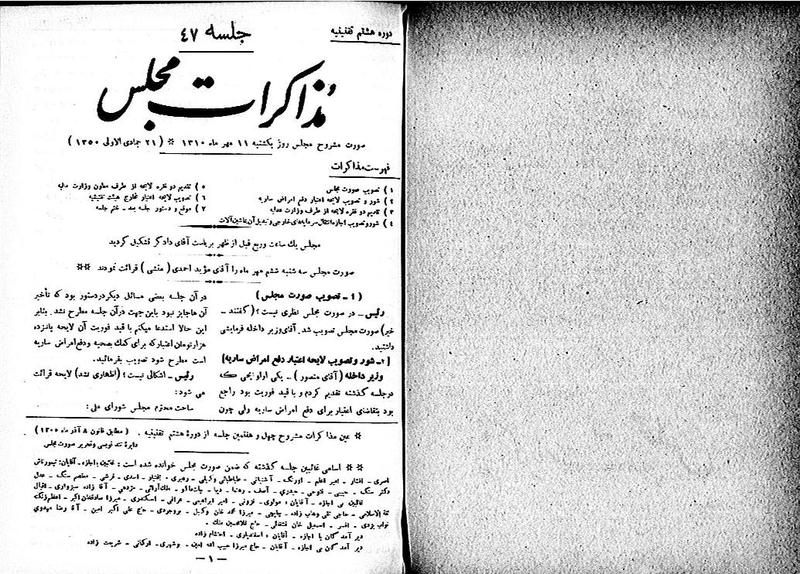 دوره هشتم تقنینیه
جلسه ۴۷
مذاکرات مجلس
صورت مشروح مجلس روز یکشنبه ۱۱ مهر ماه ۱۳۱۰ * (۲۱ جمادی الاولی ۱۳۵۰)
فهرست مذاکرات
۱) تصویب صورت مجلس
۲) شور و تصویب لایحه اعتبار دفع امراض ساریه
۳) تقدیم دو فقره لایحه از طرف وزارت عدلیه
۴) شور و تصویب اجازه انتقال سرمایه‌های خارجی و تبدیل آن بماشین آلات
۵) تقدیم دو فقره لایحه از طرف معاون وزارت مالیه
۶) تصویب لایحه اعتبار مخارج هیئت تفتیشیه
۷) موقع و دستور جلسه بعد - ختم جلسه
مجلس یک ساعت و ربع قبل از ظهر بریاست آقای دادگر تشکیل گردید
صورت مجلس سه شنبه ششم مهر ماه را آقای مؤید احمدی (منشی) قرائت نمودند **
(۱ - تصویب صورت مجلس)
رئیس - در صورت مجلس نظری نیست؟ (گفتند -
خیر) صورت مجلس تصویب شد. آقای وزیر داخله فرمایشی
داشتید.
[۲- شور و تصویب لایحه اعتبار دفع امراض ساریه]
وزیر داخله (آقای منصور) - یکی از لوایحی که
در جلسه گذشته تقدیم کردم و با قید فوریت بود راجع
بود بتقاضای اعتبار برای دفع امراض ساریه ولی چون
در آن جلسه بعضی مسائل دیگر در دستور بود که تأخیر
آن‌ها جایز نبود باین جهت در آن جلسه مطرح نشد. بنابر
این حالا استدعا میکنم با قید فوریت آن لایحه پانزده
هزار تومان اعتبار که برای کمک بصحیه و دفع امراض ساریه
است مطرح شود تصویب بفرمائید.
رئیس - اشکالی نیست؟ (اظهاری نشد) لایحه قرائت
می شود:
ساحت محترم مجلس شورای ملی:
* عین مذاکرات مشروح چهل و هفتمین جلسه از دورهٔ هشتم تقنینیه. (مطابق قانون ۸ آذر ماه ۱۳۰۵)
دایرهٔ تند نویسی و تحریر صورت مجلس
** اسامی غائبین جلسه گذشته که ضمن صورت مجلس خوانده شده است: غائبین با اجازه - آقایان: تیمورتاش
دیر آمدگان با اجازه - آقایان: اسفندیاری - احتشام زاده
دیر آمدگان بی اجازه - آقایان - حاج میرزا حبیب الله امین - بوشهری - لرکانی - شریعت زاده
— ۱ —